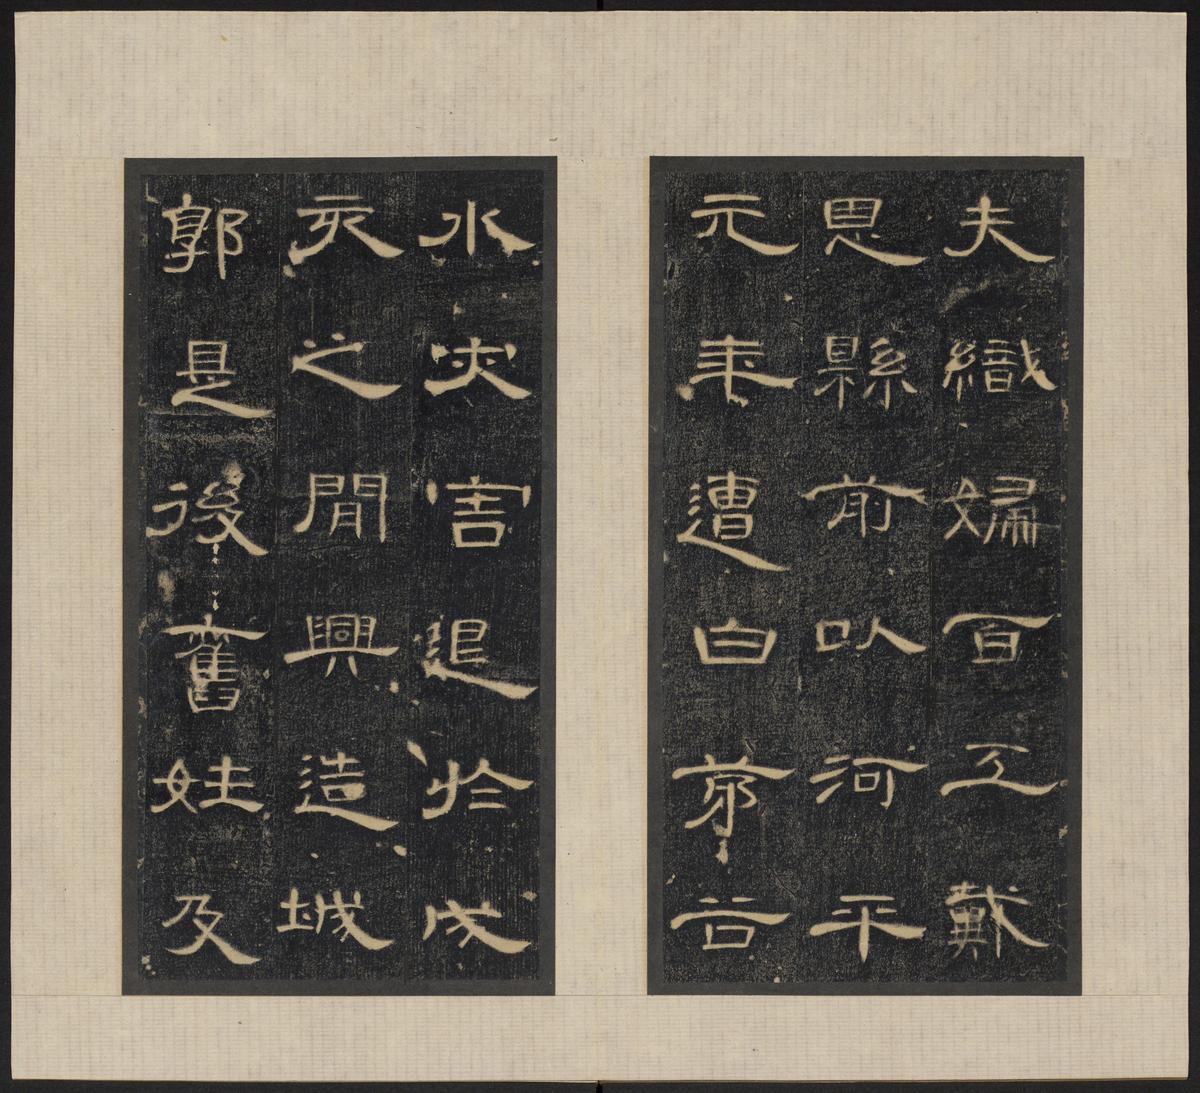 夫織婦百工戴
恩縣前以河平
元年遭白茅谷
水灾害退於戍
亥之間興造城
郭是後舊姓及